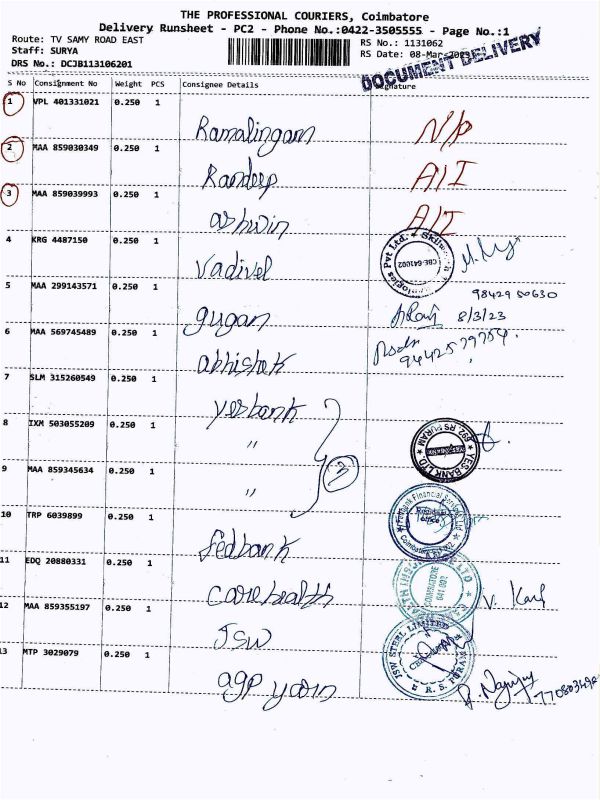 THE PROFESSIONAL COURIERS, Coimbatore
Delivery Runsheet - PC2 - Phone No.:0422-3505555 - Page No.:1
Route: TV SAMY ROAD EAST
RS No.: 1131062
Staff: SURYA
RS Date: 08-Mar-2023
DRS No.: DCJB113106201
DOCUMENT DELIVERY
S No Consignment No Weight PCS Consignee Details Signature
1 VPL 401331021 0.250 1
Ramalingam N/D
2 MAA 859030349 0.250 1
Randeep A/I
3 MAA 859039993 0.250 1
ashwin A/I
4 KRG 4487150 0.250 1
Vadivel
CBE-641002
5 MAA 299143571 0.250 1
98429 50630
gugan 8/3/23
6 MAA 569745489 0.250 1
abhishek 9442579754
7 SLM 315260549 0.250 1
yesbank
8 IXM 503055209 0.250 1
"
YES BANK LTD * 692 RS PURAM *
9 MAA 859345634 0.250 1
" 3
10 TRP 6039899 0.250 1
fedbank
11 EDQ 20880331 0.250 1
carehealth V. Karl
COIMBATORE 641 002
12 MAA 859355197 0.250 1
JSW
JSW STEEL LIMITED R. S. PURAM
13 MTP 3029079 0.250 1
agp yarn